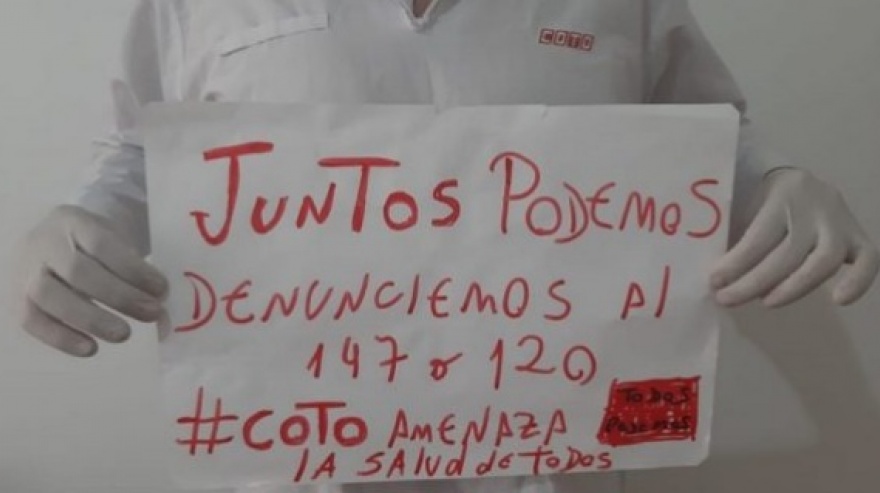 COTO
JUNTOS PODEMOS
DENUNCIEMOS Al
147 o 120
#COTO AMENAZA
LA SALUD de TODOS
TODOS
Podemos